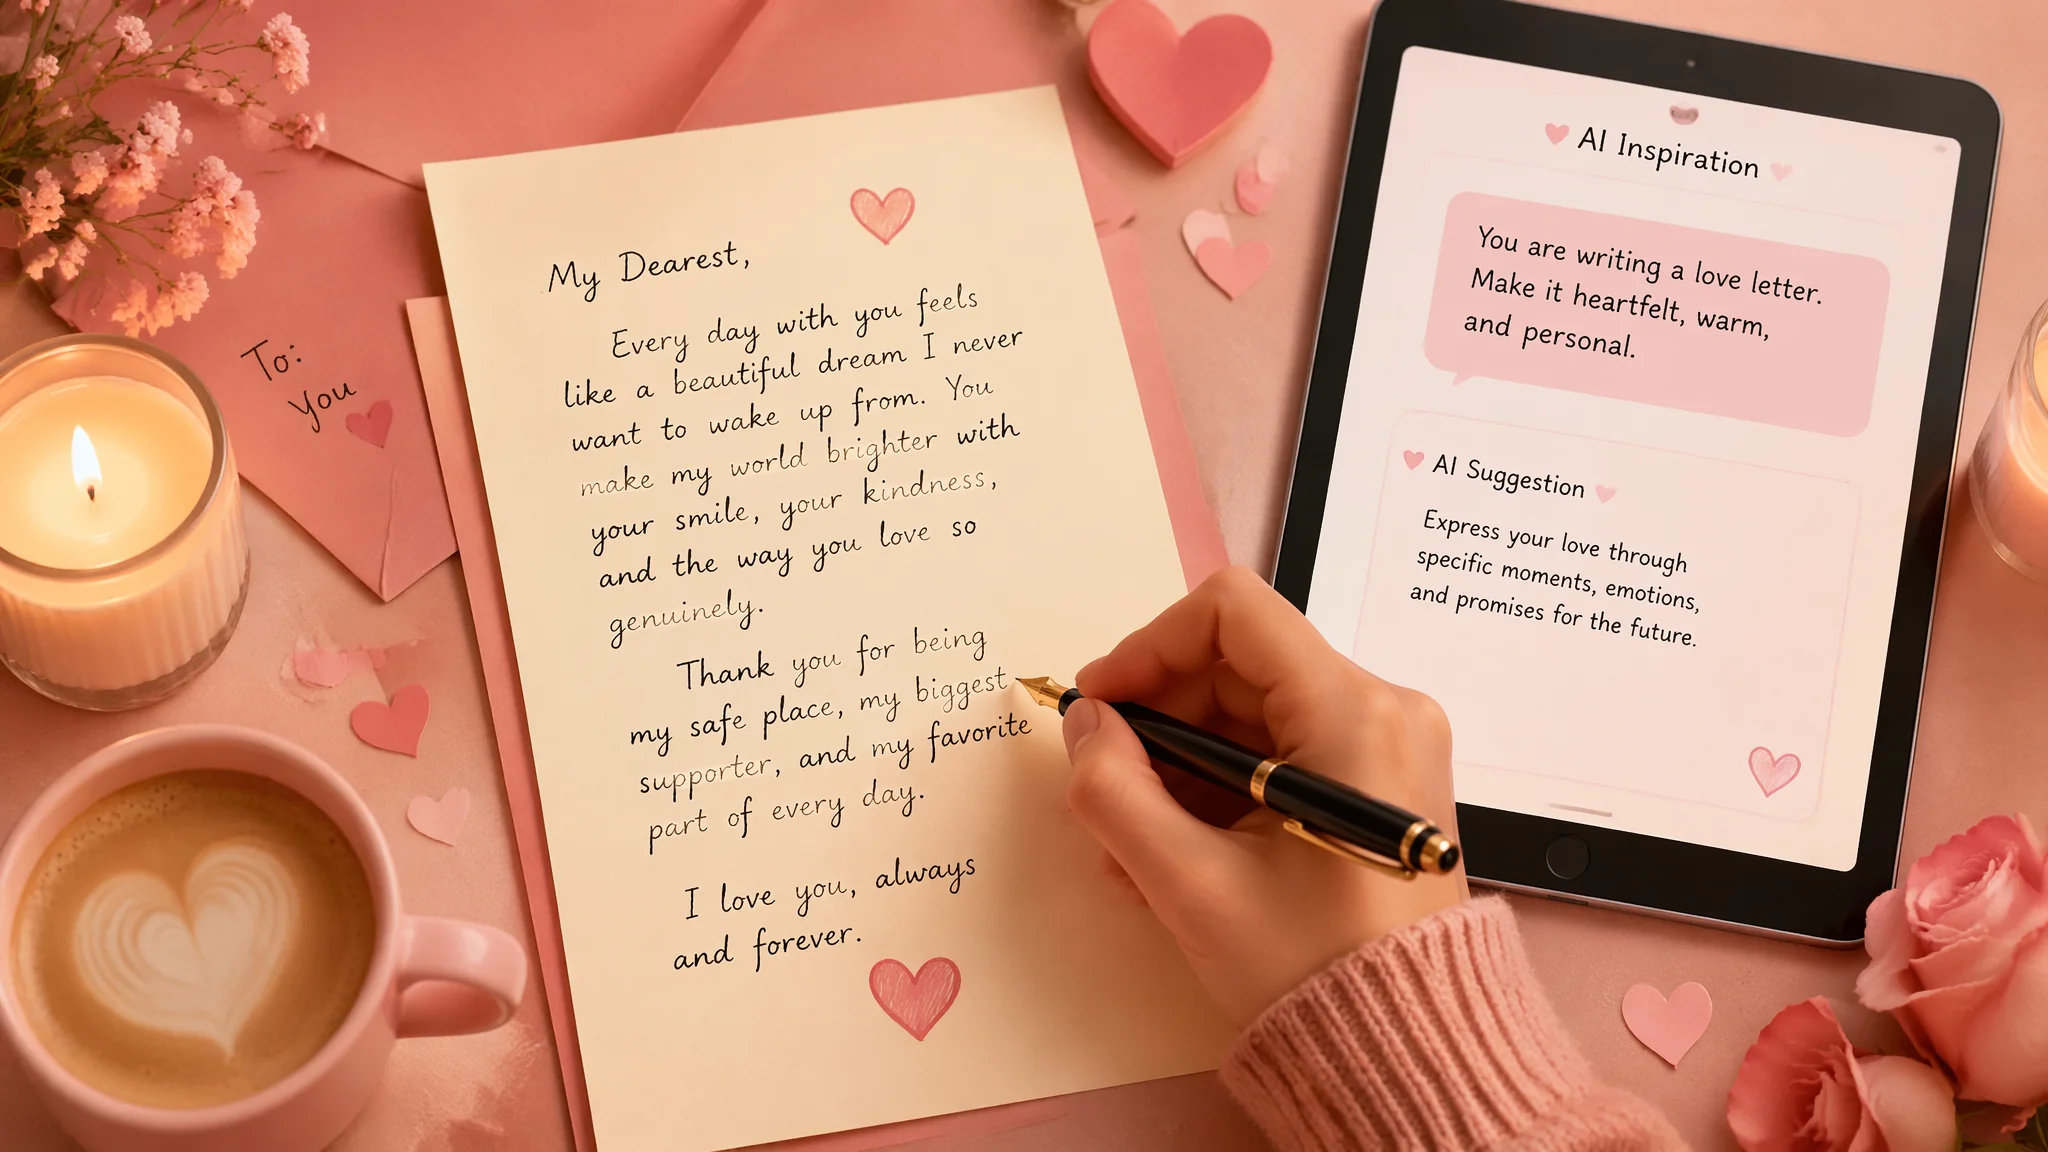 To:
You
My Dearest,
Every day with you feels
like a beautiful dream I never
want to wake up from. You
make my world brighter with
your smile, your kindness,
and the way you love so
genuinely.
Thank you for being
my safe place, my biggest
supporter, and my favorite
part of every day.
I love you, always
and forever.
AI Inspiration
You are writing a love letter.
Make it heartfelt, warm,
and personal.
AI Suggestion
Express your love through
specific moments, emotions,
and promises for the future.